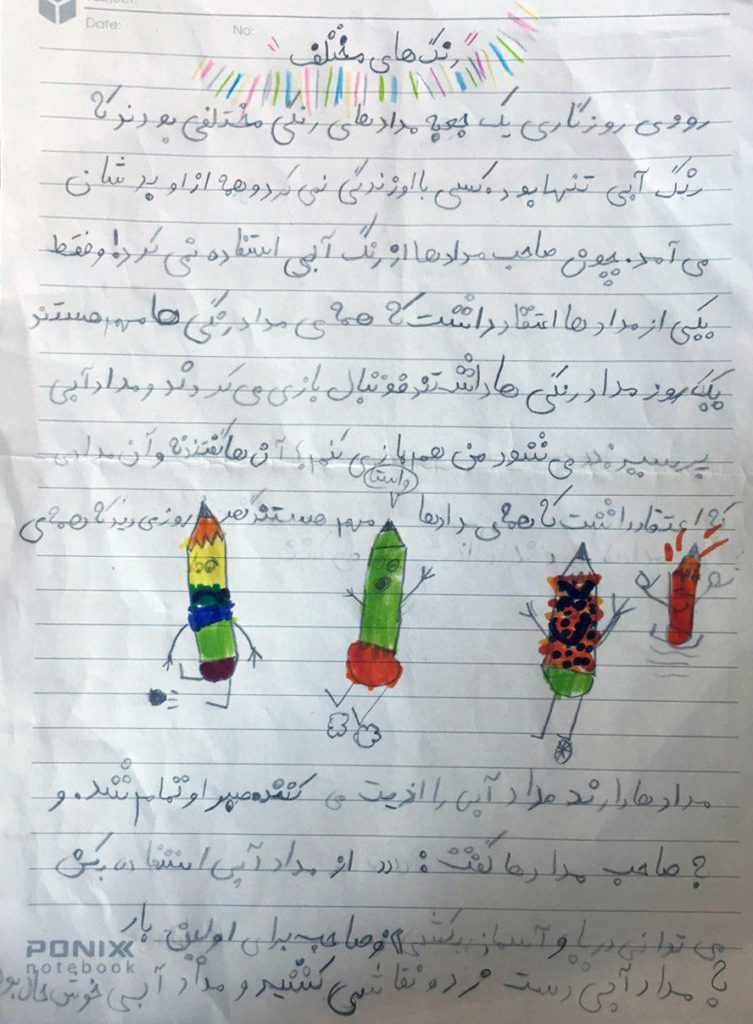 Date:
No:
رنگ های مختلف
روزی روزگاری یک جعبه مدادهای رنگی مختلفی بودند که
رنگ آبی تنها بود. کسی با او زندگی نمی کرد و همه از او بد شان
می آمد. چون صاحب مدادها از رنگ آبی استفاده نمی کرد! و فقط
یکی از مداد ها اعتقاد داشت که همه ی مداد رنگی ها مهم هستند
یک روز مداد رنگی ها داشتند فوتبال بازی می کردند و مداد آبی
پرسید: می شود من هم بازی کنم؟ آن ها گفتند نه و آن مدادی
که اعتقاد داشت که همه ی مدادها مهم هستند روزی دید که همه ی
واستا
مدادها دارند مداد آبی را اذیت می کنند. صبر او تمام شد. و
به صاحب مدادها گفت: از مداد آبی استفاده بکن
می توانی دریا و آسمان بکشی و صاحب برای اولین بار
به مداد آبی دست زد و نقاشی کشید و مداد آبی خوش حال بود
PONIXX
notebook